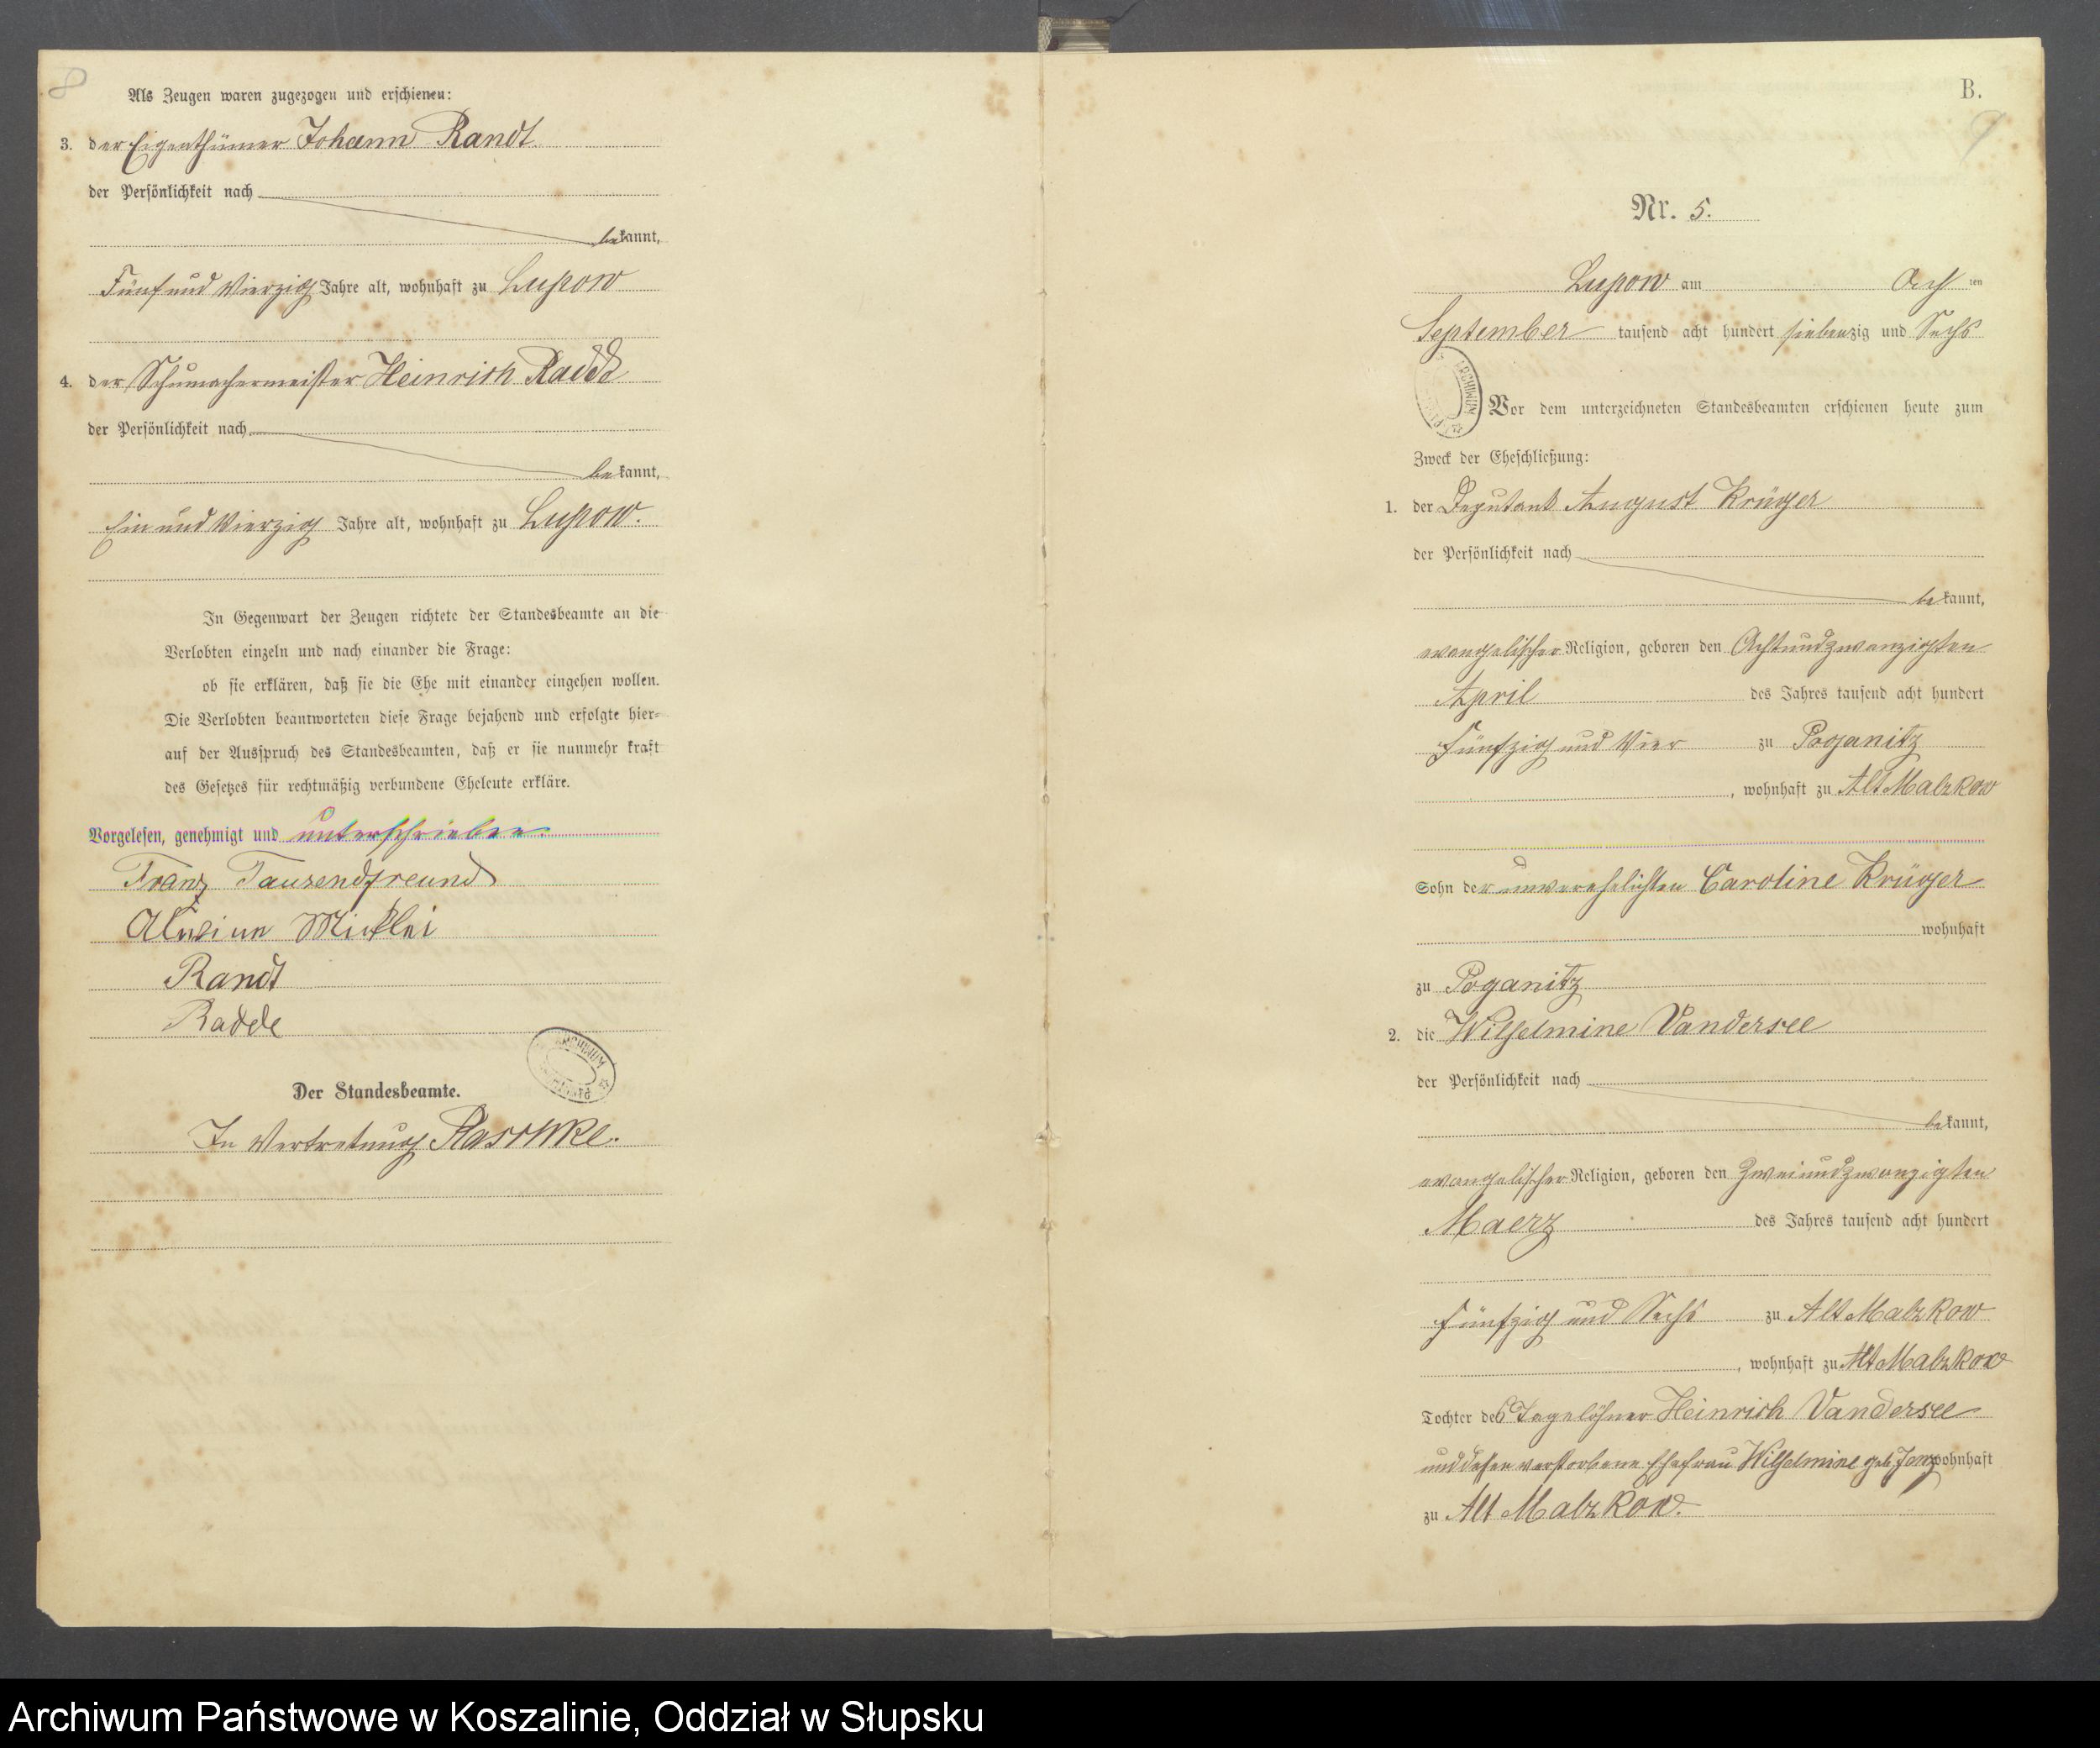 8
Als Zeugen waren zugezogen und erschienen:
3. der Eigenthümer Johann Randt
der Persönlichkeit nach
bekannt,
Fünf und Vierzig Jahre alt, wohnhaft zu Lupow
4. der Schumachermeister Heinrich Radde
der Persönlichkeit nach
bekannt,
Ein und Vierzig Jahre alt, wohnhaft zu Lupow.
In Gegenwart der Zeugen richtete der Standesbeamte an die
Verlobten einzeln und nach einander die Frage:
ob sie erklären, daß sie die Ehe mit einander eingehen wollen.
Die Verlobten beantworteten diese Frage bejahend und erfolgte hier-
auf der Ausspruch des Standesbeamten, daß er sie nunmehr kraft
des Gesetzes für rechtmäßig verbundene Eheleute erkläre.
Vorgelesen, genehmigt und unterschrieben.
Franz Tausendfreund
Randt
Radde
Der Standesbeamte.
In Vertretung Raschke.
B.
9
Nr. 5.
Lupow am Ach ten
September tausend acht hundert siebenzig und Sechs
ARCHIWUM
Vor dem unterzeichneten Standesbeamten erschienen heute zum
Zweck der Eheschließung:
1. der Deputant August Krüger
der Persönlichkeit nach
bekannt,
evangelischer Religion, geboren den Achtundzwanzigsten
April des Jahres tausend acht hundert
fünfzig und Vier zu Poganitz
, wohnhaft zu Alt Malzkow
Sohn der unverehelichten Caroline Krüger
wohnhaft
zu Poganitz
2. die Wilhelmine Vandersee
der Persönlichkeit nach
bekannt,
evangelischer Religion, geboren den Zweiundzwanzigsten
Maerz des Jahres tausend acht hundert
fünfzig und Sechs zu Alt Malzkow
, wohnhaft zu Alt Malzkow
Tochter des Tagelöhner Heinrich Vandersee
und dessen verstorbene Ehefrau Wilhelmine geb. wohnhaft
zu Alt Malzkow.
Archiwum Państwowe w Koszalinie, Oddział w Słupsku